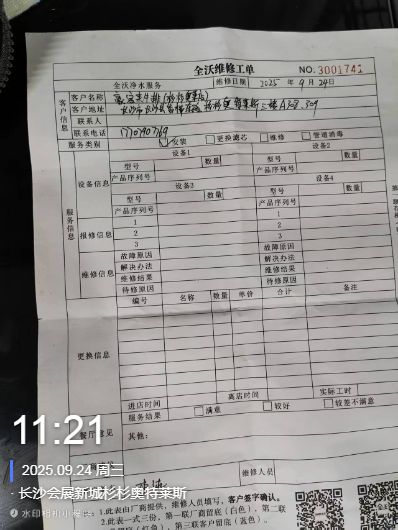 全沃维修工单
NO.3001741
全沃净水服务
维修日期 2025 年 9 月 24 日
客户信息
客户名称
客户地址 三楼A308.309
联系人
联系电话
服务类别 安装 更换滤芯 维修 管道消毒
服务信息
设备信息
设备1 设备2
型号 数量 型号 数量
产品序列号 产品序列号
设备3 设备4
型号 数量 型号 数量
产品序列号 产品序列号
报修信息
1
2
3
维修信息
故障原因 故障原因
解决办法 解决办法
维修结果 维修结果
待修原因 待修原因
更换信息
编号 名称 数量 单价 合计 备注
进店时间 离店时间 实际工时
服务结果 满意 较好 较差不满意
餐厅意见 其他：
维修人员 客户签字确认
1.此表由厂商提供，维修人员填写，
2.此表一式三份，第一联厂商留底（白色），第二联
第三联客户留底（蓝色）。
11:21
2025.09.24 周三
·长沙会展新城杉杉奥特莱斯
水印相机小程序